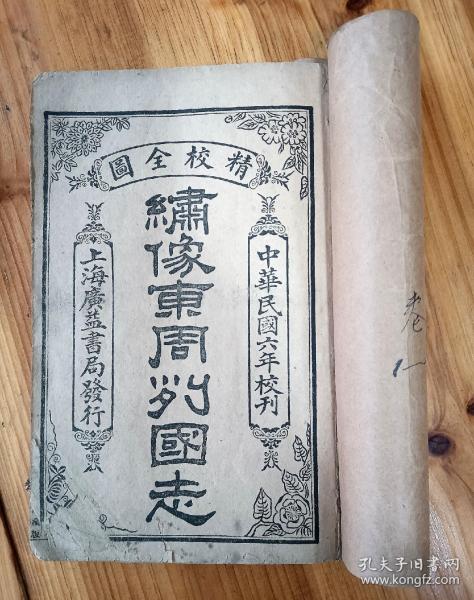 精校全圖
中華民國六年校刊
繡像東周列國志
上海廣益書局發行
卷一
孔夫子旧书网
www.kongfz.com